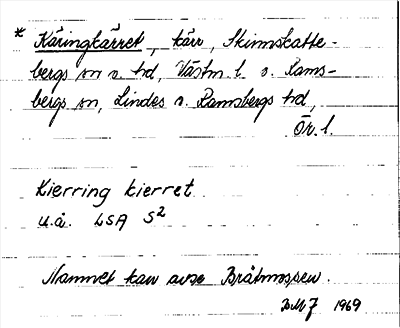 * Käringkärret, kärr, Skinnskatte-
bergs sn o. hd, Västm. l. o. Rams-
bergs sn, Lindes o. Ramsbergs hd,
Ör. l.
Kierring kierret
u.å. LSA S²
Namnet kan avse Bråtmossen.
1969